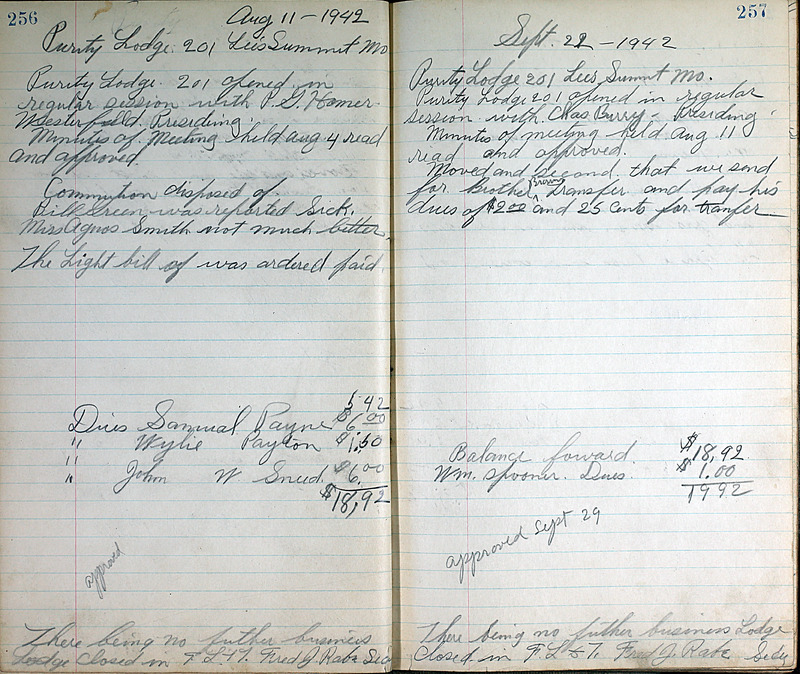 256
Aug 11 - 1942
Purity Lodge 201 Lees Summit Mo
Purity Lodge 201 opened in
regular session with P. G. Homer
Westerfield Presiding
Minutes of Meeting held Aug 4 read
and approved
Commution disposed of
Bill Green was reported Sick.
Miss Agnos Smith not much better
The Light bill of was ordered paid
5.42
Dues Samual Payne $6.00
" Wylie Payton $1.50
"
" John W Sneed $6.00
$18,92
approved
There being no futher business
Lodge closed in F. L. & T. Fred J. Rabe Sec
257
Sept. 22 - 1942
Purity Lodge 201 Lees Summit Mo.
Purity Lodge 201 opened in regular
session with Chas Burry - Presiding
Minutes of meeting held Aug 11
read and approved.
Moved and second that we send
for Brother transfer and pay his
dues of $2.00 and 25 Cents for tranfer
Balance forward $18,92
Wm. Spooner. Dues $1.00
1992
approved Sept 29
There being no futher business Lodge
Closed in F. L & T. Fred J. Rabe Secy